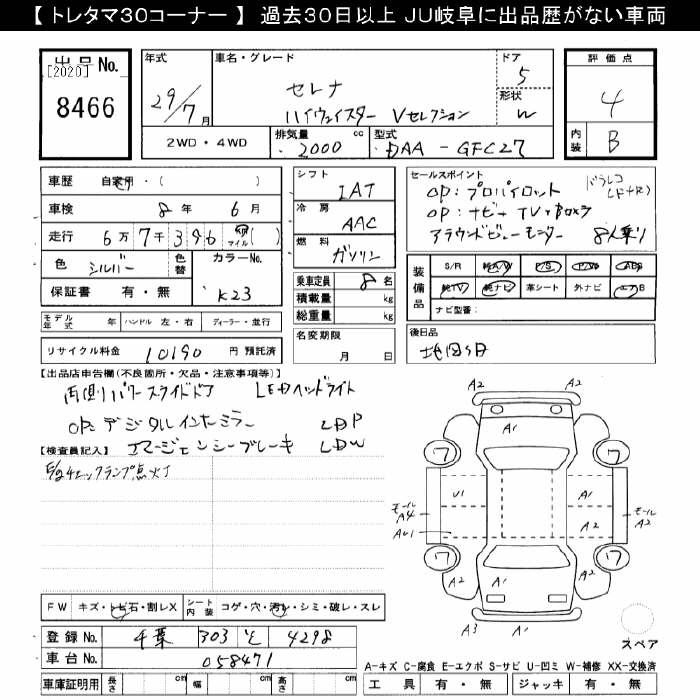 【 トレタマ30コーナー 】 過去30日以上 JU岐阜に出品歴がない車両
出品No.
[2020]
8466
年式
29/7月
車名・グレード
セレナ
ハイウェイスター Vセレクション
ドア
5
形状
W
評価点
4
内装
B
2WD・4WD
排気量
2000 cc
型式
DAA - GFC27
車歴 自家用・( )
車検 8年 6月
走行 6万7千396 km マイル( )
色 シルバー
色替
カラーNo.
K23
保証書 有・無
モデル年式 年 ハンドル 左・右 ディーラー・並行
リサイクル料金 10190 円 預託済
シフト
IAT
冷房
AAC
燃料
ガソリン
乗車定員 8 名
積載量 kg
総重量 kg
名変期限
月 日
セールスポイント
OP:プロパイロット ドラレコ(F+R)
OP:ナビ+TV+Bカメラ
アラウンドビューモニター 8人乗り
装備品
S/R 純A/W P/S P/W ABS
純TV 純ナビ 革シート 外ナビ エアB
ナビ型番:
後日品
【出品店申告欄(不良箇所・欠品・注意事項等)】
両側パワースライドドア LEDヘッドライト
OP:デジタルインナーミラー LDP
エマージェンシーブレーキ LDW
【検査員記入】
E/gチェックランプ点灯
FW キズ・トビ石・割レX
シート内装 コゲ・穴・汚レ・シミ・破レ・スレ
登録No. 千葉 303 4298
車台No. 058471
車庫証明用 長さ cm 幅 cm 高さ cm
A2 A2
A1
A2
7 7
U1 A1
モール A4
AU1
A2
モール A2
7 7
A2 A1 A2
A3 A1
スペア
A-キズ C-腐食 E-エクボ S-サビ U-凹ミ W-補修 XX-交換済
工具 有・無 ジャッキ 有・無